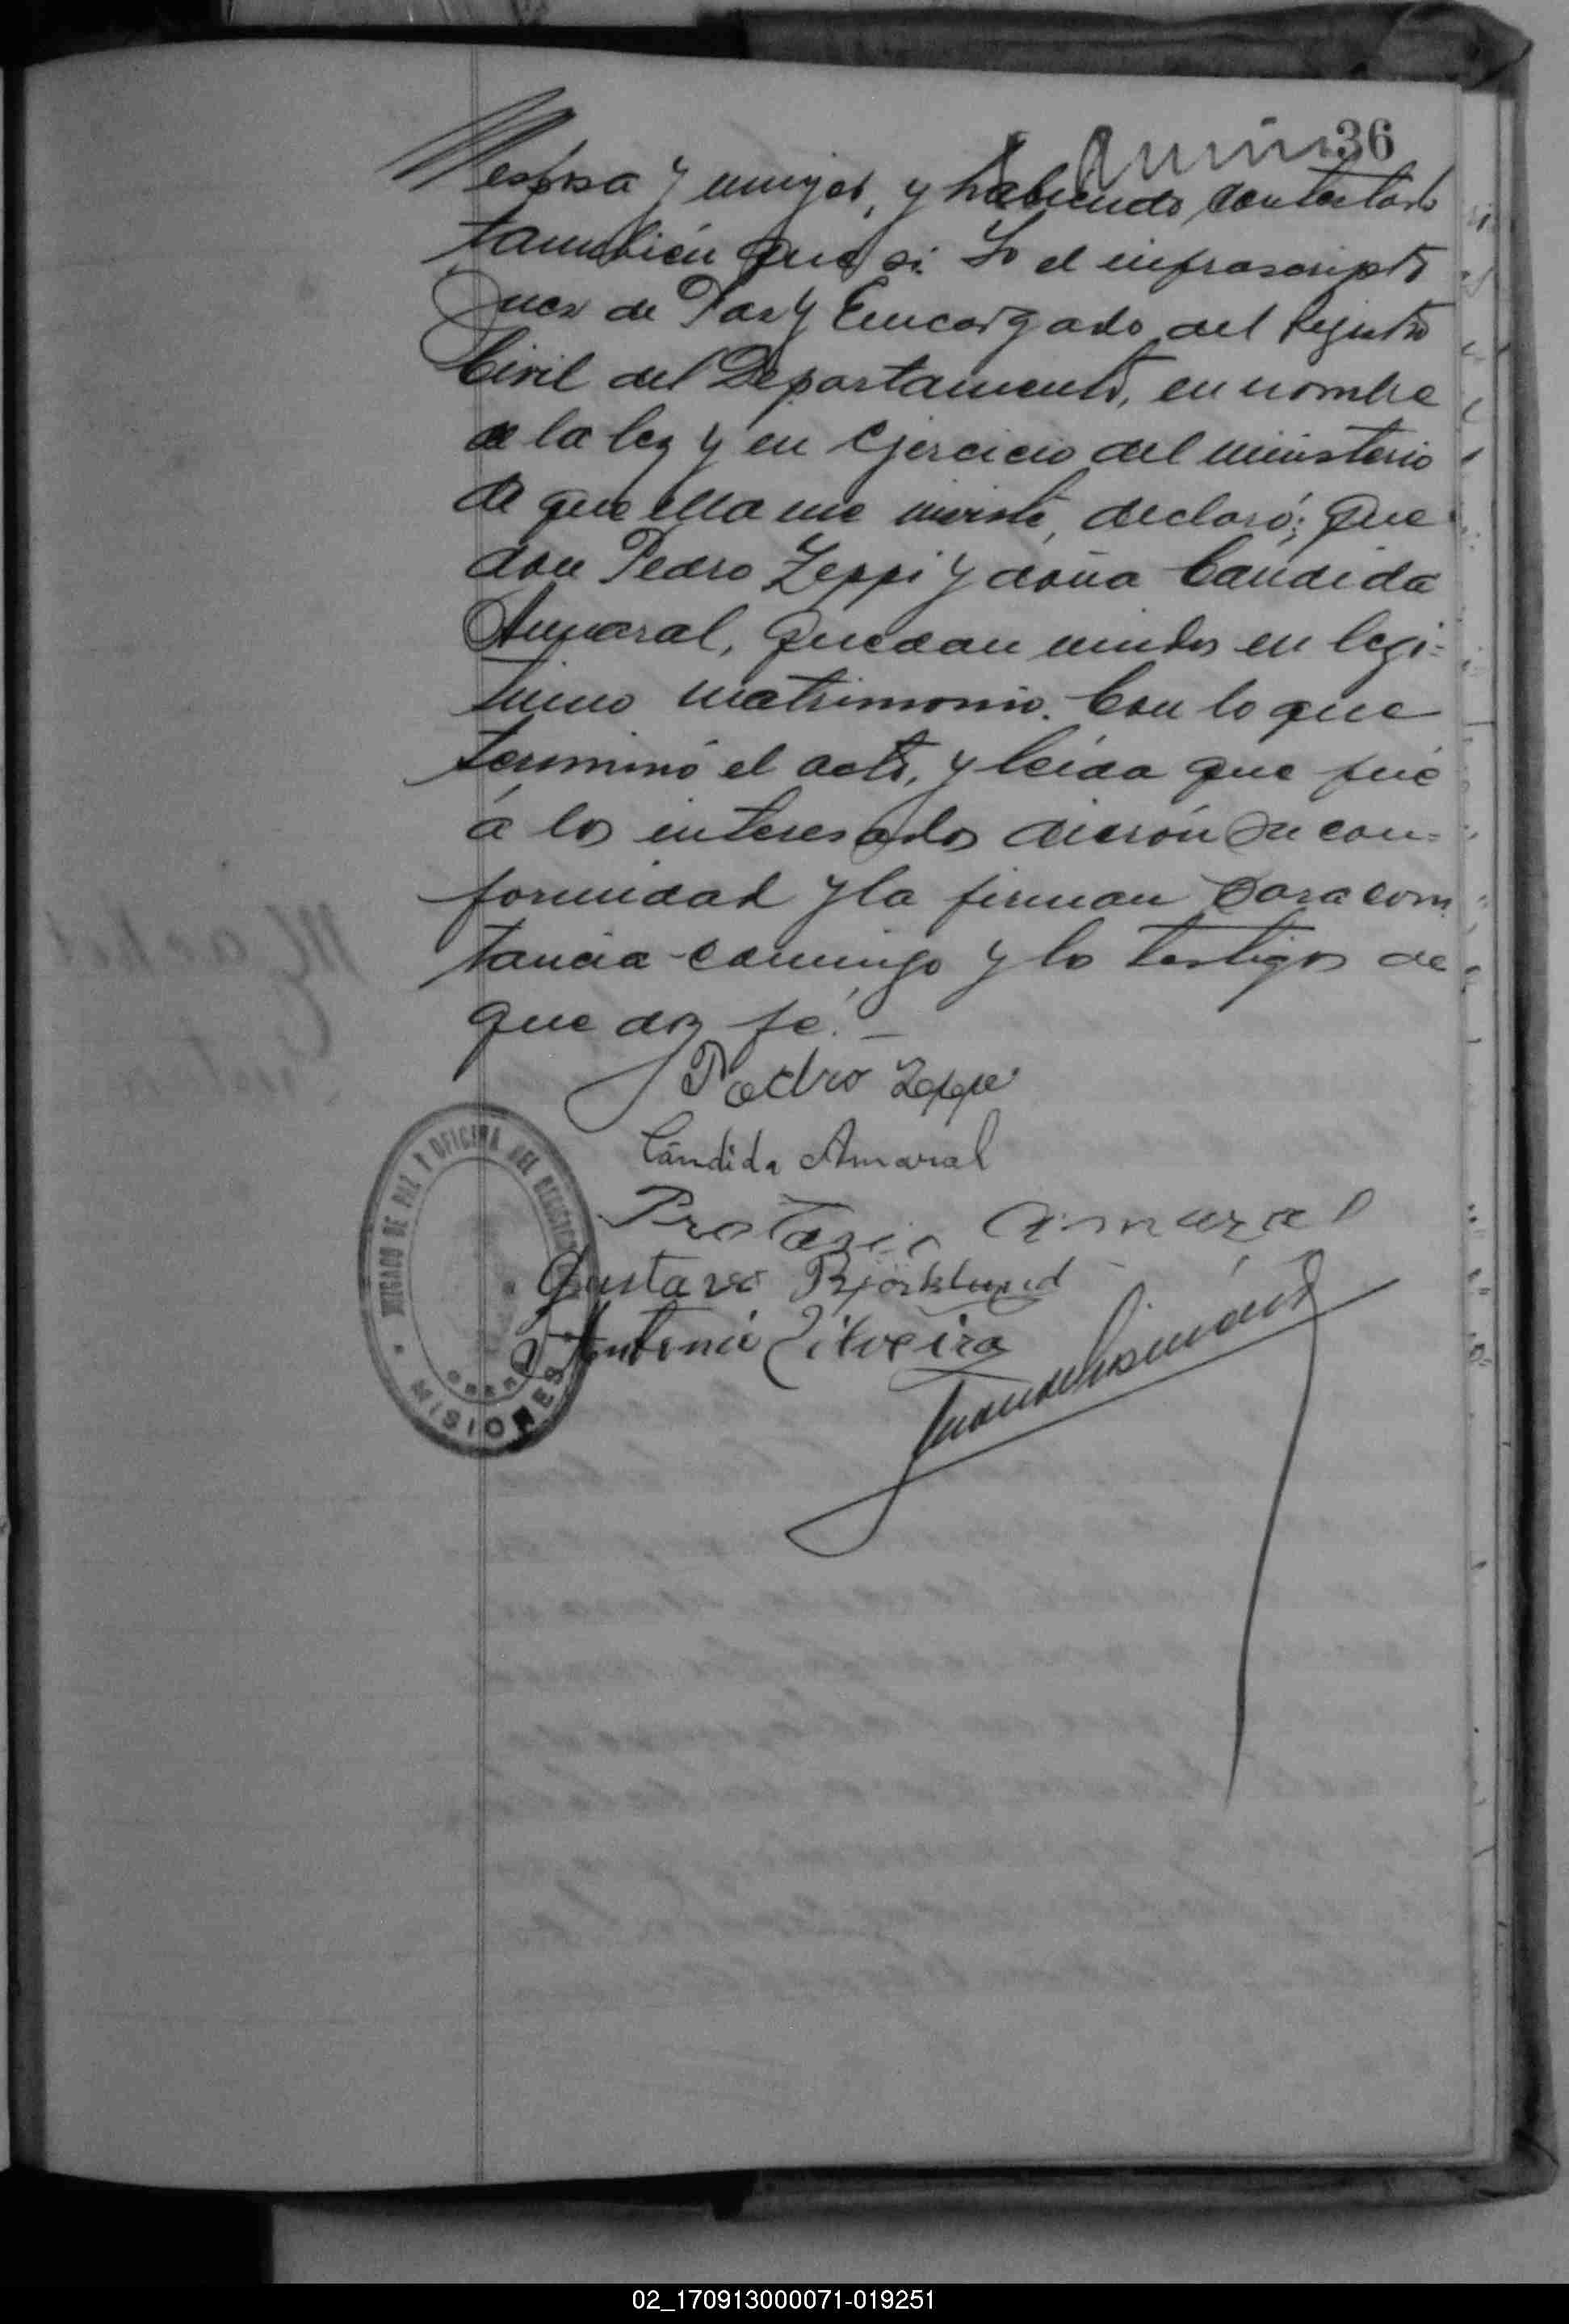 36
esposa y mujer, y habiendo contestado
también que si. Yo el infrascripto
Juez de Paz y Encargado del Registro
Civil del Departamento, en nombre
de la ley y en ejercicio del ministerio
de que ella me inviste, declaró; que
don Pedro Zeppi y doña Candida
Amaral, quedan unidos en legi=
timo matrimonio. Con lo que
terminó el acto, y leida que fué
á los interesados dierón su con=
formidad y la firman para cons
tancia conmigo y los testigos de
que doy fé.—
Pedro Zeppi
Cándida Amaral
Protasio Amaral
Gustavo Björklund
Antonio Silveira
JUZGADO DE PAZ Y OFICINA DEL REGISTRO
MISIONES
02_170913000071-019251